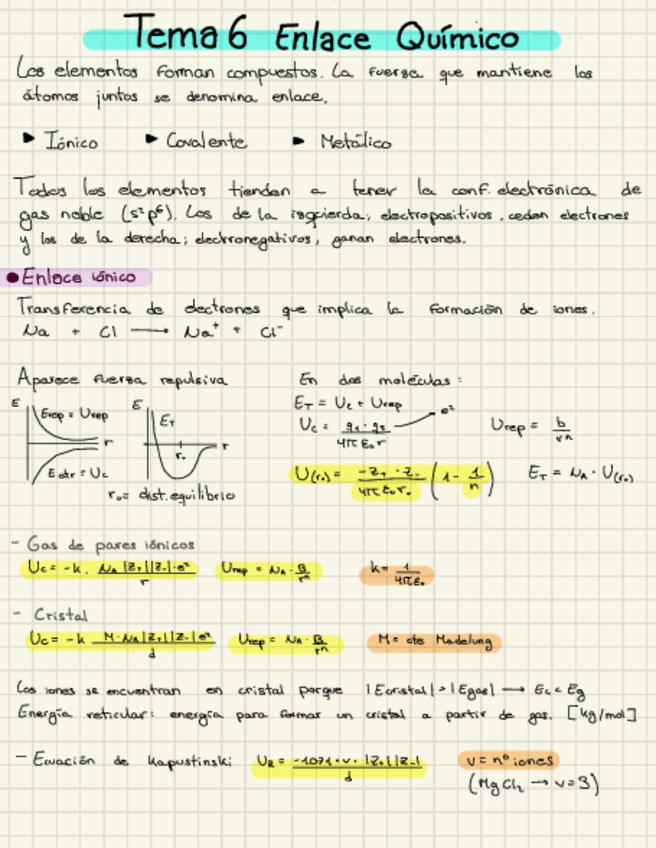 Tema 6 Enlace Químico
Los elementos forman compuestos. La fuerza que mantiene los
átomos juntos se denomina enlace.
▶ Iónico ▶ Covalente ▶ Metálico
Todos los elementos tienden a tener la conf. electrónica de
gas noble (s²p⁶). Los de la izquierda; electropositivos, ceden electrones
y los de la derecha; electronegativos, ganan electrones.
• Enlace iónico
Transferencia de electrones que implica la formación de iones.
Na + Cl → Na⁺ + Cl⁻
Aparece fuerza repulsiva
E Erep = Urep r Eatr = Uc
E ET r₀ r
r₀ = dist. equilibrio
En dos moléculas:
ET = Uc + Urep
Uc = q₁·q₂ / 4πε₀r → e²
Urep = b / rⁿ
U(r₀) = -Z₊·Z₋ / 4πε₀r₀ (1 - 1/n) ET = NA · U(r₀)
- Gas de pares iónicos
Uc = -k · NA|Z₊||Z₋|·e² / r Urep = NA · B/rⁿ k = 1 / 4πε₀
- Cristal
Uc = -k M·NA|Z₊||Z₋|e² / d Urep = NA · B/rⁿ M = cte Madelung
Los iones se encuentran en cristal porque |Ecristal| > |Egas| → Ec < Eg
Energía reticular: energía para formar un cristal a partir de gas. [kg/mol]
- Ecuación de Kapustinski: UR = -1071·v·|Z₊||Z₋| / d v = nº iones
(MgCl₂ → v=3)